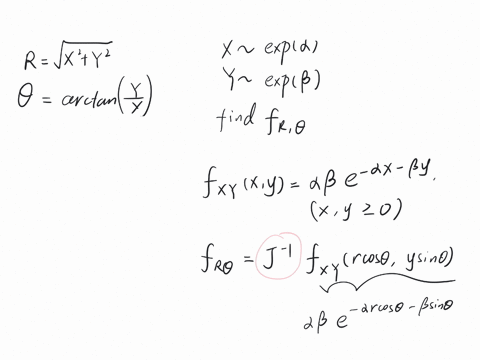 R = √(X²+Y²)
θ = arctan(Y/X)
X ~ exp(α)
Y ~ exp(β)
find f_{R,θ}
f_{XY}(x,y) = αβ e^{-αx-βy}.
(x, y ≥ 0)
f_{Rθ} = J⁻¹ f_{XY}(rcosθ, ysinθ)
αβ e^{-αrcosθ-βsinθ}